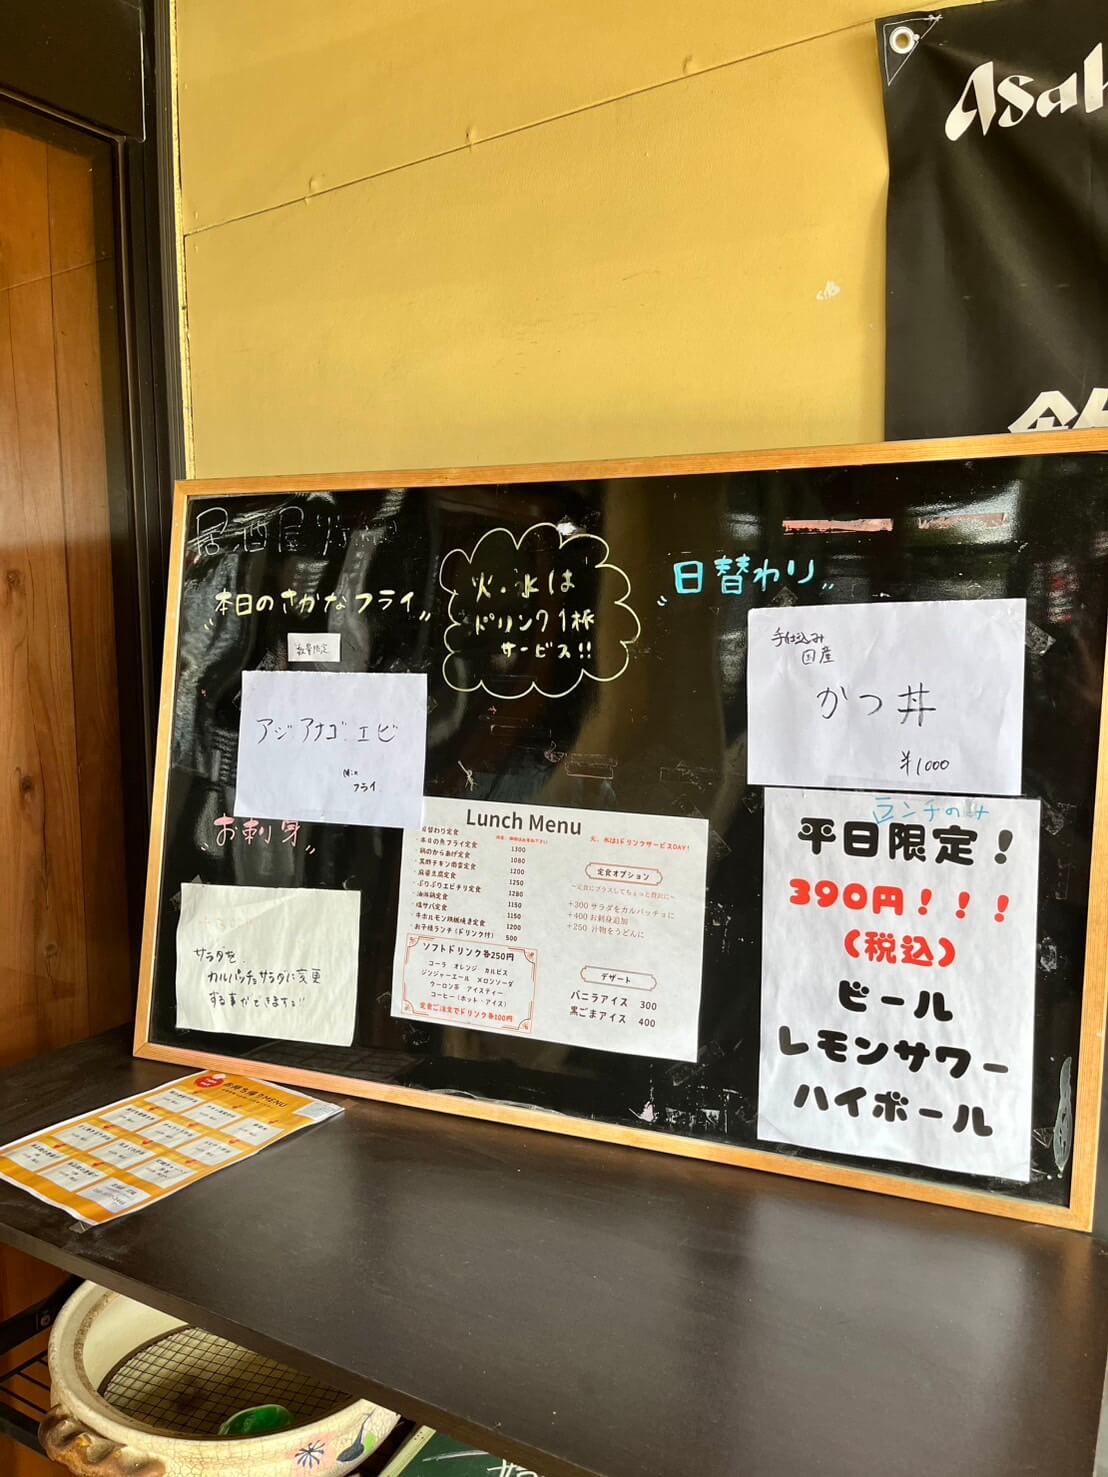 Asah
居酒屋
〝本日のさかなフライ〟
数量限定
アジ アナゴ エビ
Mix
フライ
火、水は
ドリンク1杯
サービス!!
〝日替わり〟
手仕込み
国産
かつ丼
¥1000
〝お刺身〟
サラダを
カルパッチョサラダに変更
する事ができます!!
Lunch Menu
・日替わり定食
・本日の魚フライ定食 1300
・鶏のからあげ定食 1080
・黒酢チキン南蛮定食 1200
・麻婆豆腐定食 1250
・ぷりぷりエビチリ定食 1280
・油淋鶏定食 1150
・塩サバ定食 1150
・牛ホルモン鉄板焼き定食 1200
・お子様ランチ(ドリンク付) 500
ソフトドリンク各250円
コーラ オレンジ カルピス
ジンジャーエール メロンソーダ
ウーロン茶 アイスティー
コーヒー(ホット・アイス)
定食ご注文でドリンク各100円
火、水は1ドリンクサービスDAY!
定食オプション
~定食にプラスしてちょっと贅沢に~
+300 サラダをカルパッチョに
+400 お刺身追加
+250 汁物をうどんに
デザート
バニラアイス 300
黒ごまアイス 400
ランチのみ
平日限定!
390円!!!
(税込)
ビール
レモンサワー
ハイボール
お持ち帰りMENU